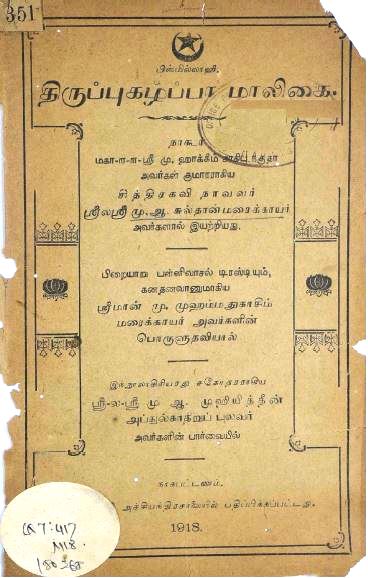 351
பிஸ்மில்லாஹி.
திருப்புகழ்ப்பா மாலிகை.
நாகூர்
மகா-ள-ள-ஸ்ரீ மு. ஹாக்கீம்
அவர்கள் குமாரராகிய
சித்திரகவி நாவலர்
ஸ்ரீலஸ்ரீ மு.ஆ. சுல்தான்மரைக்காயர்
அவர்களால் இயற்றியது.
பிறையாறு பள்ளிவாசல் டிரஸ்டியும்,
கனதனவானுமாகிய
ஸ்ரீமான் மு. முஹம்மதுகாசிம்
மரைக்காயர் அவர்களின்
பொருளுதவியால்
இந்நூலாசிரியரது சகோதரராகிய
ஸ்ரீ-ல-ஸ்ரீ மு ஆ. முஹியித்தீன்
அப்துல்காதிறுப் புலவர்
அவர்களின் பார்வையில்
நாகபட்டணம்,
பதிப்பிக்கப்பட்டது.
1918.